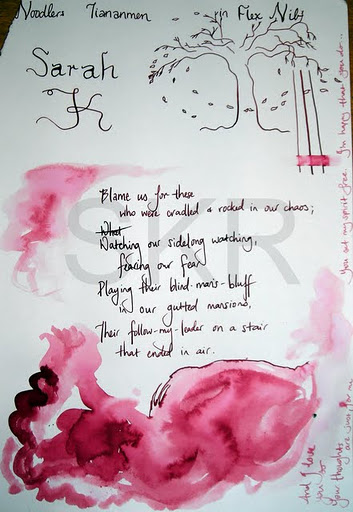 Noodlers Tiananmen in Flex Nibs
Sarah
K
Blame us for these
who were cradled & rocked in our chaos;
What
Watching our sidelong watching,
fearing our fear
Playing their blind-man's-bluff
in our gutted mansions,
Their follow-my-leader on a stair
that ended in air.
SKR
You set my spirit free. I'm happy that you do...
And I love
you so
Your thoughts are just for me